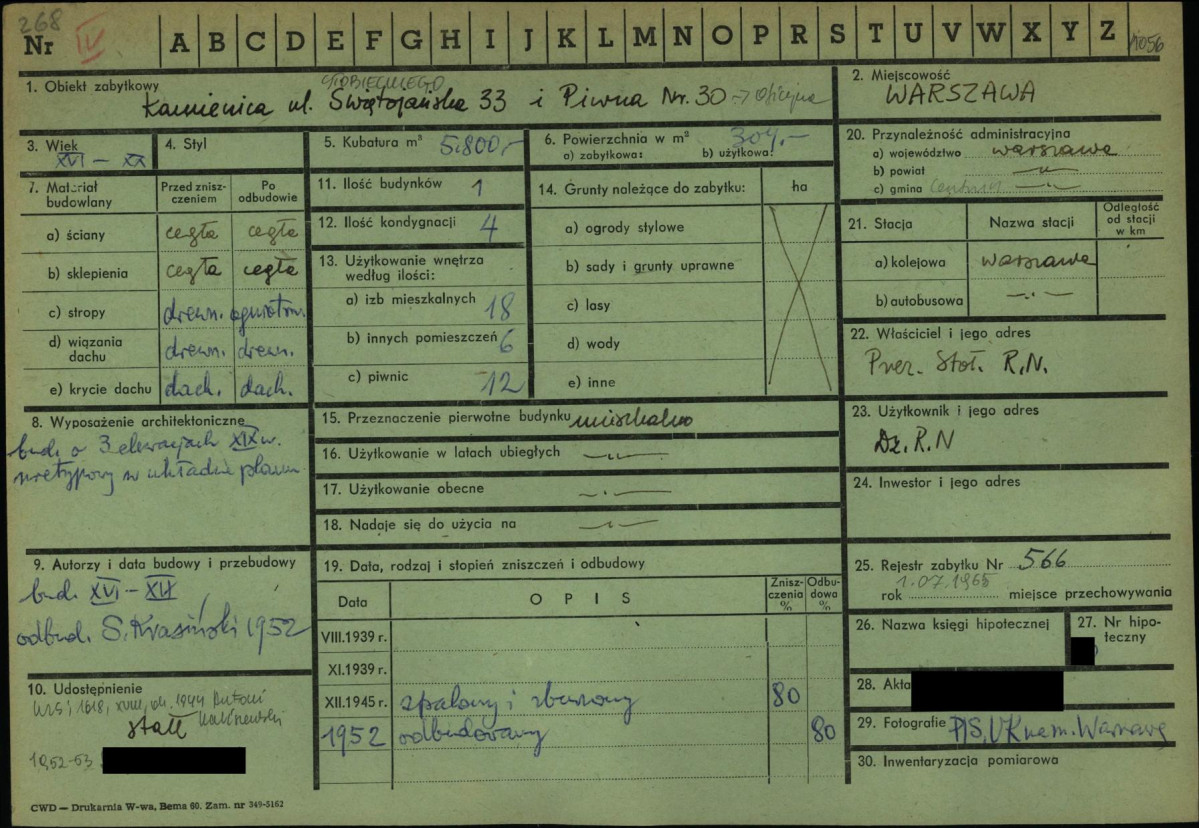 268
Nr IV A B C D E F G H I J K L M N O P R S T U V W X Y Z 1056
1. Obiekt zabytkowy
Kamienica ul. Świętojańska 33 i Piwna Nr. 30 → Oficyna
2. Miejscowość
WARSZAWA
3. Wiek
XVI – XX
4. Styl
5. Kubatura m³ 5.800,-
6. Powierzchnia w m² 304,-
a) zabytkowa: b) użytkowa:
20. Przynależność administracyjna
a) województwo warszawa
b) powiat —„—
c) gmina
7. Materiał budowlany
Przed zniszczeniem
Po odbudowie
a) ściany cegła cegła
b) sklepienia cegła cegła
c) stropy drewn. ogniotrw.
d) wiązania dachu drewn. drewn.
e) krycie dachu dach. dach.
11. Ilość budynków 1
12. Ilość kondygnacji 4
13. Użytkowanie wnętrza
według ilości:
a) izb mieszkalnych 18
b) innych pomieszczeń 6
c) piwnic 12
14. Grunty należące do zabytku: ha
a) ogrody stylowe
b) sady i grunty uprawne
c) lasy
d) wody
e) inne
21. Stacja Nazwa stacji Odległość od stacji w km
a) kolejowa warszawa
b) autobusowa —„—
22. Właściciel i jego adres
Prez. Stoł. R.N.
23. Użytkownik i jego adres
Dz. R.N
24. Inwestor i jego adres
8. Wyposażenie architektoniczne
bud. o 3 elewacjach XIX w.
nietypowy w układzie planu
15. Przeznaczenie pierwotne budynku mieszkalno
16. Użytkowanie w latach ubiegłych —„—
17. Użytkowanie obecne —„—
18. Nadaje się do użycia na —„—
9. Autorzy i data budowy i przebudowy
bud. XVI – XIX
odbud. S. Krasiński 1952
19. Data, rodzaj i stopień zniszczeń i odbudowy
Data OPIS Zniszczenia % Odbudowa %
VIII.1939 r.
XI.1939 r.
XII.1945 r. spalony i zburzony 80
1952 odbudowany 80
25. Rejestr zabytku Nr 566
1.07.1965
rok miejsce przechowywania
26. Nazwa księgi hipotecznej
27. Nr hipoteczny
28. Akta
29. Fotografie
30. Inwentaryzacja pomiarowa
10. Udostępnienie
1952-53
CWD — Drukarnia W-wa, Bema 60. Zam. nr 349-5162